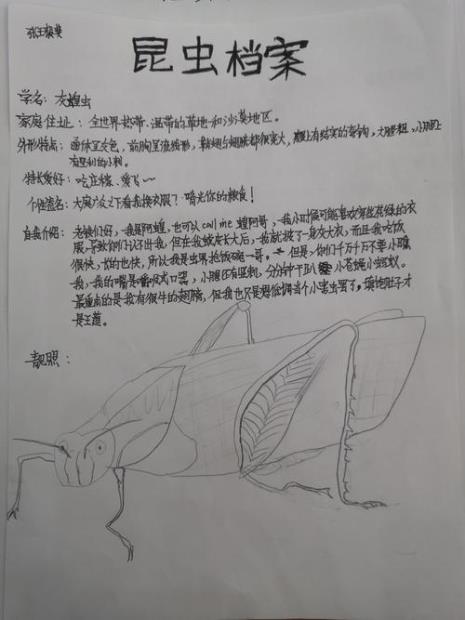 昆虫档案
学名：灰蝗虫
家庭住址：全世界热带、温带的草地和沙漠地区。
外形特点：通体呈灰色，前胸呈流线形，鞘翅与翅膀都很宽大，腿上有
有坚利的小刺。
特长爱好：吃庄稼、爱飞～～
个性签名：大庭广众之下看我换衣服？啃光你的粮食！
自我介绍：老铁们好，我是阿蝗，也可以call me 蝗阿哥，我小时候可能喜欢穿些花绿的衣
服，导致你们认不出我，但在我蜕皮长大后，我就披了一身灰大衣，而且我吃饭
很快，飞的也快，所以我是虫界抢饭碗一哥。但是，你们千万千万不要小瞧
我，我的嘴是咀嚼式口器，小腿还有坚刺，分分钟干趴小苍蝇小蚂蚁。
最重要的是我有很牛的翅膀，但我也只是想低调当个小害虫罢了，填饱肚子才
是王道。
靓照：